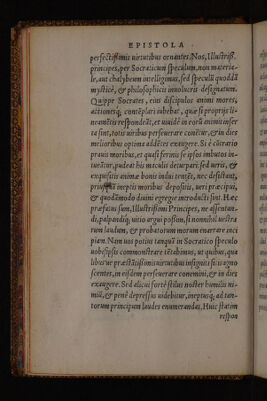 EPISTOLA
perfectissimis virtutibus ornantes. Nos, Illustriss.
principes, per Socraticum speculum, non materia-
le, aut chalybeum intelligimus, sed speculũ quoddã
mysticè, & philosophicis inuolucris designatum.
Quippe Socrates, eius discipulos animi mores,
actionesq; contẽplari iubebat, quæ si propriis li-
neamẽtis respondeãt, et uiuidè in corũ animis inser
ta sint, totis uiribus perseuerare conẽtur, & in dies
melioribus optima addẽtes exaugere. Si è cõtrario
prauis moribus, et quasi ferinis se ipsos imbutos in-
tueãtur, pudeat his maculis deturpari sed uiriũ, &
exquisitis animæ bonis indui tentẽt, nec desistant,
priusq̃ ineptis moribus depositis, ueri præcipui,
& quodãmodo diuini egregie introducti sint. Hæc
præfatus sum, Illustrissimi Principes, ne assentan-
di, palpandiq; uitio argui possum, si nonnihil uestra
rum laudum, & probatorum morum enarrare inci
piam. Nam uos potius tanquã in Socratico speculo
uobisipsis commonstrare tẽtabimus, ut quibus, qua
libetue præstãtissimis uirtutibus insigniti sitis agno
scentes, in eisdem perseuerare conemini, & in dies
exaugere. Sed alicui fortè stilus noster humilis ni-
miũ, & penè depressus uidebitur, ineptusq; ad tan-
torum principum laudes enumerandas. Huic statim
respon